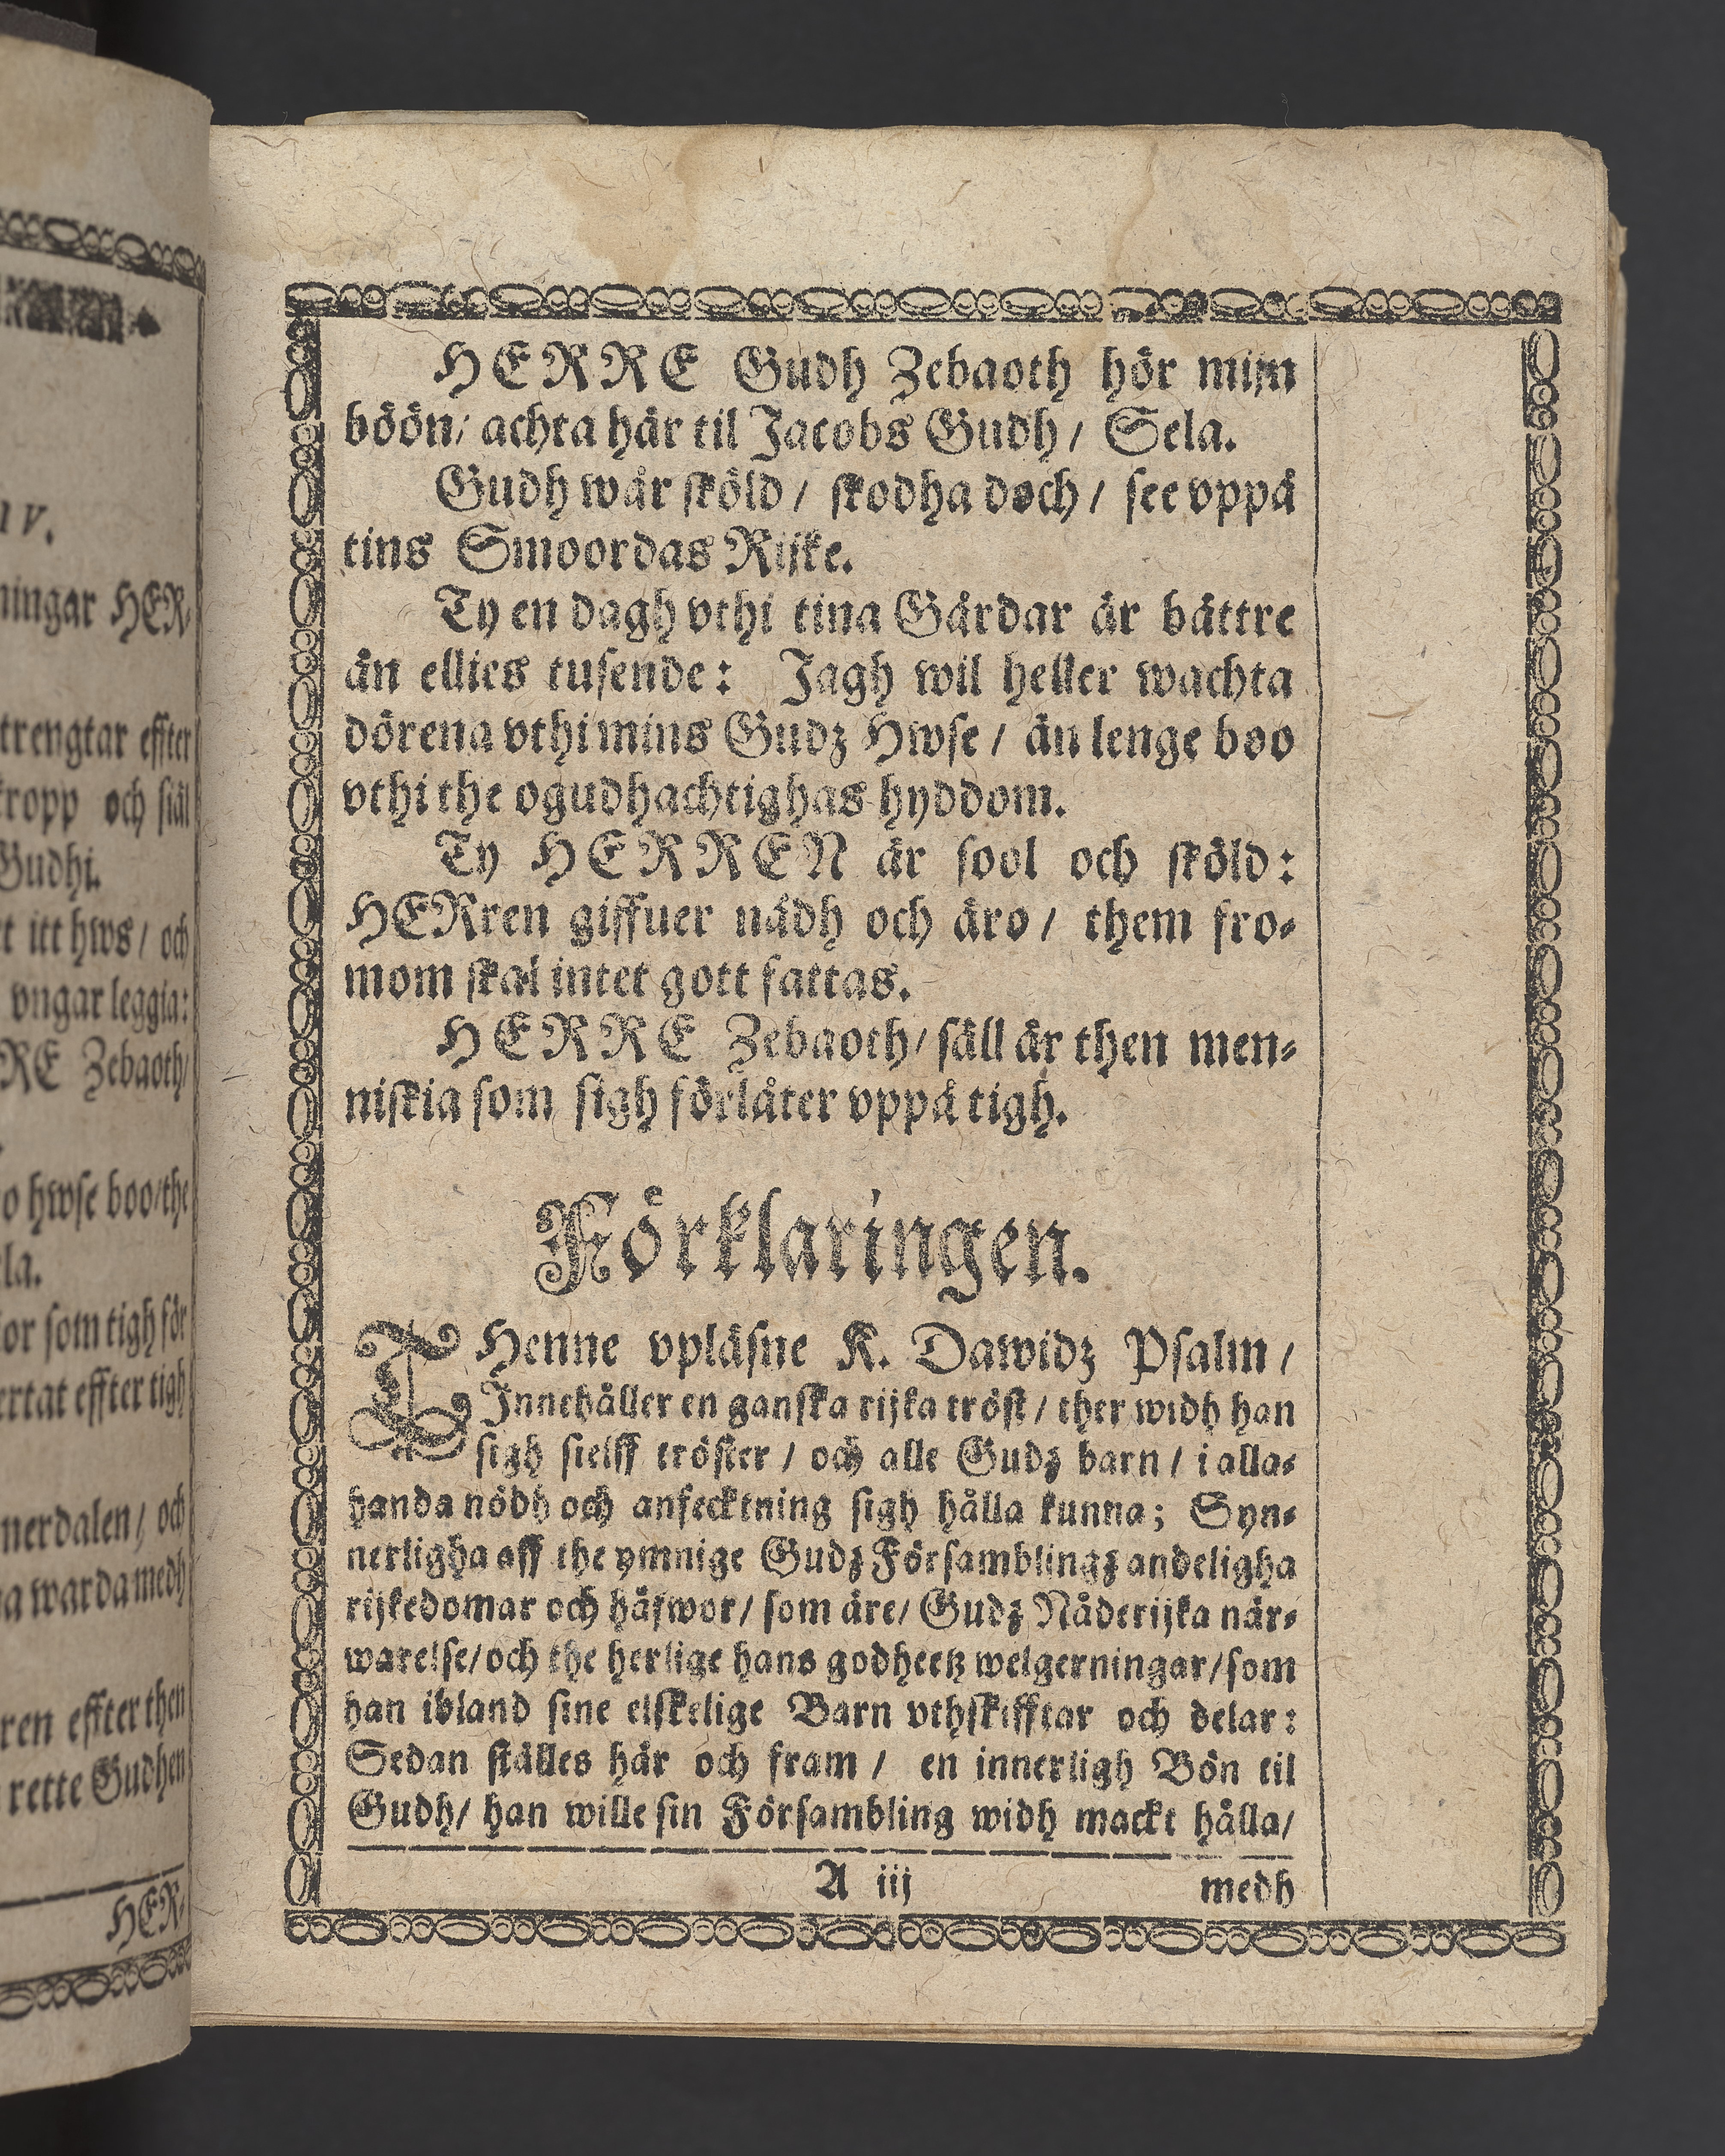 IV.
ningar HER-
trengtar effter
kropp och siäl
Gudhi.
itt hws / och
vngar leggia:
RE Zebaoth/
hwse boo/the
la.
som tigh för
effter tigh
nerdalen / och
warda medh
ren effter then
rette Gudhen
HER-
HERRE Gudh Zebaoth hör mijn
böön/ achta här til Jacobs Gudh / Sela.
Gudh wår sköld / skodha doch / see vppå
tins Smoordas Rijke.
Ty en dagh vthi tina Gårdar är bättre
än ellies tusende: Jagh wil heller wachta
dörena vthi mins Gudz Hwse / än lenge boo
vthi the ogudhachtighas hyddom.
Ty HERREN är sool och sköld:
HERren giffuer nådh och äro / them fro-
mom skal intet gott fattas.
HERRE Zebaoth/ säll är then men-
niskia som sigh förlåter vppå tigh.
Förklaringen.
THenne vpläsne K. Dawidz Psalm /
Innehåller en ganska rijka tröst / ther widh han
sigh sielff tröster / och alle Gudz barn / i alla-
handa nödh och anfecktning sigh hålla kunna; Syn-
nerligha aff the ymnige Gudz Församblingz andeligha
rijkedomar och häfwor/ som äre/ Gudz Nåderijka när-
warelse/och the herlige hans godheetz welgerningar/som
han ibland sine elskelige Barn vthskifftar och delar:
Sedan ställes här och fram / en innerligh Bön til
Gudh/ han wille sin Försambling widh mackt hålla/
A iij
medh